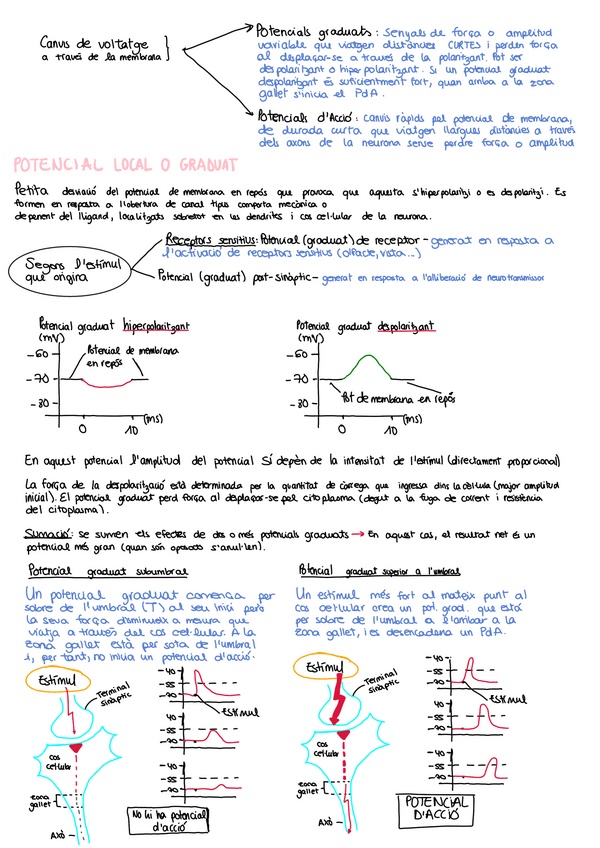 Canvis de voltatge
a través de la membrana
Potencials graduats: Senyals de força o amplitud
variable que viatgen distàncies CURTES i perden força
al desplaçar-se a través de la polaritzant. Pot ser
despolaritzant o hiperpolaritzant. Si un potencial graduat
despolaritzant és suficientment fort, quan arriba a la zona
gallet s'inicia el PdA.
Potencials d'Acció: canvis ràpids pel potencial de membrana,
de durada curta que viatgen llargues distàncies a través
dels axons de la neurona sense perdre força o amplitud
POTENCIAL LOCAL O GRADUAT
Petita desviació del potencial de membrana en repós que provoca que aquesta s'hiperpolaritzi o es despolaritzi. Es
formen en resposta a l'obertura de canal tipus comporta mecànica o
depenent del lligand, localitzats sobretot en les dendrites i cos cel·lular de la neurona.
Segons l'estímul
que origina
Receptors sensitius: Potencial (graduat) de receptor - generat en resposta a
l'activació de receptors sensitius (olfacte, vista...)
Potencial (graduat) post-sinàptic - generat en resposta a l'alliberació de neurotransmissor
Potencial graduat hiperpolaritzant
(mV)
-60
-70
-80
Potencial de membrana
en repós
0
10
(ms)
Potencial graduat despolaritzant
(mV)
-60
-70
-80
Pot de membrana en repós
0
10
(ms)
En aquest potencial l'amplitud del potencial SÍ depèn de la intensitat de l'estímul (directament proporcional)
La força de la despolarització està determinada per la quantitat de càrrega que ingressa dins la cèl·lula (major amplitud
inicial). El potencial graduat perd força al desplaçar-se pel citoplasma (degut a la fuga de corrent i resistència
del citoplasma).
Sumació: se sumen els efectes de dos o més potencials graduats → En aquest cas, el resultat net és un
potencial més gran (quan són oposats s'anul·len).
Potencial graduat subumbral
Un potencial graduat comença per
sobre de l'umbral (T) al seu inici però
la seva força disminueix a mesura que
viatja a través del cos cel·lular. A la
zona gallet està per sota de l'umbral
i, per tant, no inicia un potencial d'acció.
Estímul
Terminal
sinàptic
cos
cel·lular
zona
gallet
Axó
-40
-55
-70
Estímul
40
-55
-70
40
-55
-70
No hi ha potencial
d'acció
Potencial graduat superior a l'umbral
Un estímul més fort al mateix punt al
cos cel·lular crea un pot. grad. que està
per sobre de l'umbral a l'arribar a la
zona gallet, i es desencadena un PdA.
Estímul
Terminal
sinàptic
cos
cel·lular
zona
gallet
Axó
-40
-55
-70
Estímul
40
-55
-70
-40
-55
-70
POTENCIAL
D'ACCIÓ